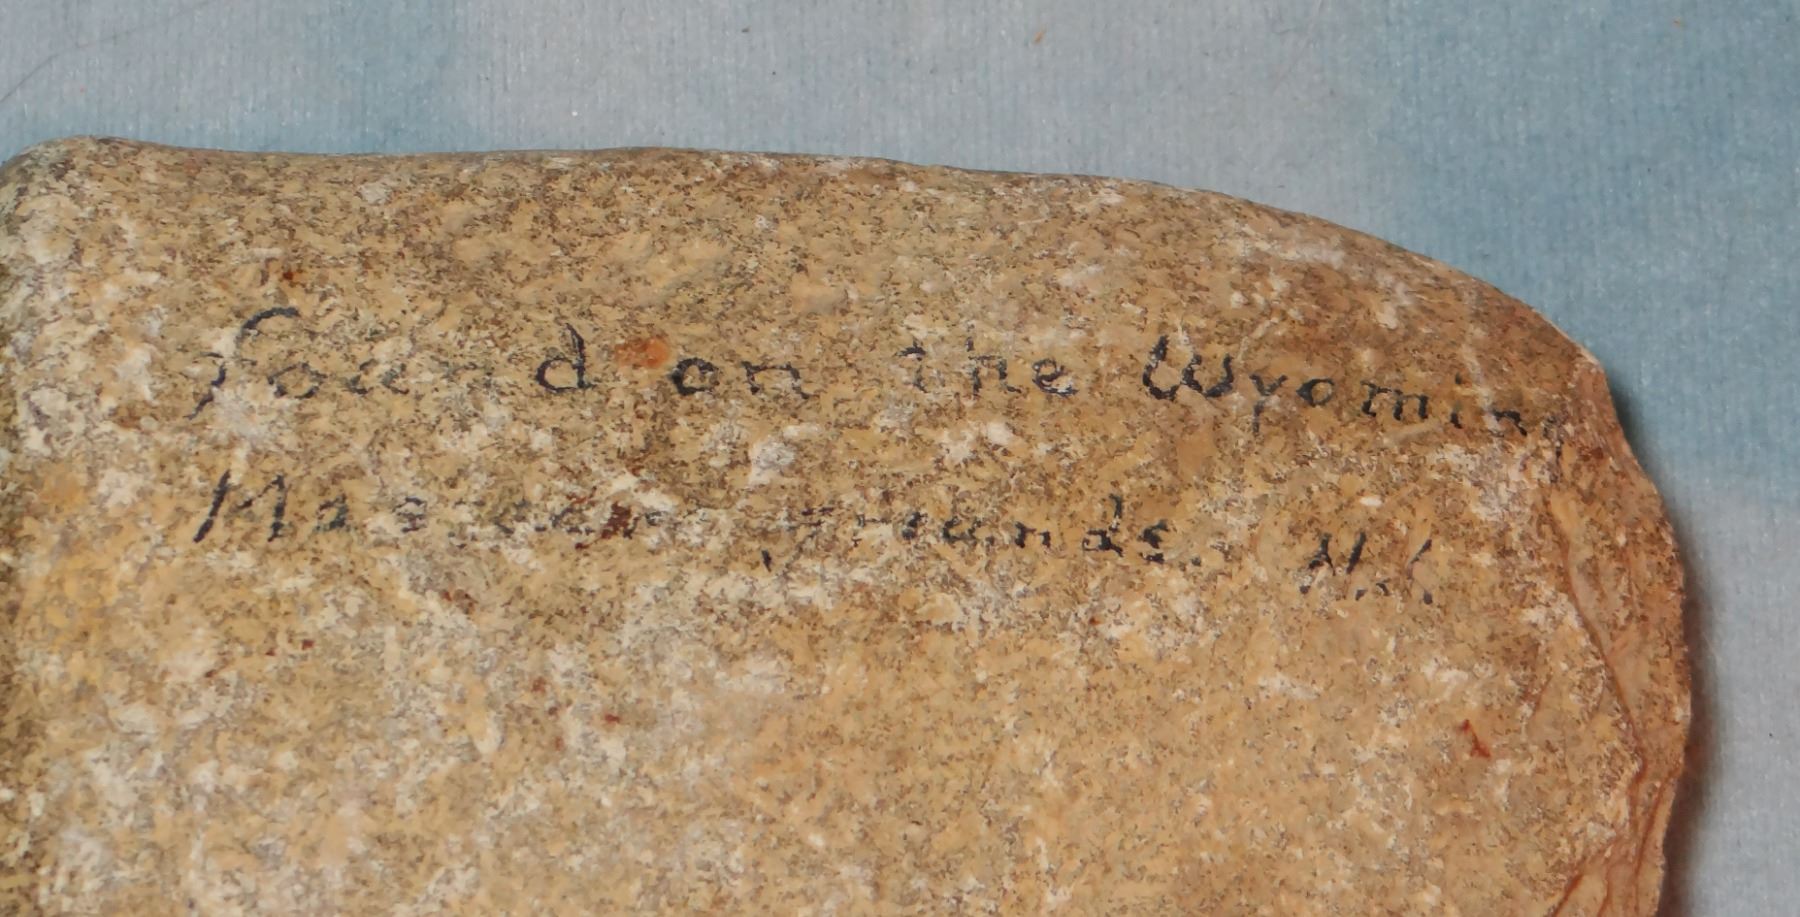 found on the Wyoming
Massacre grounds.